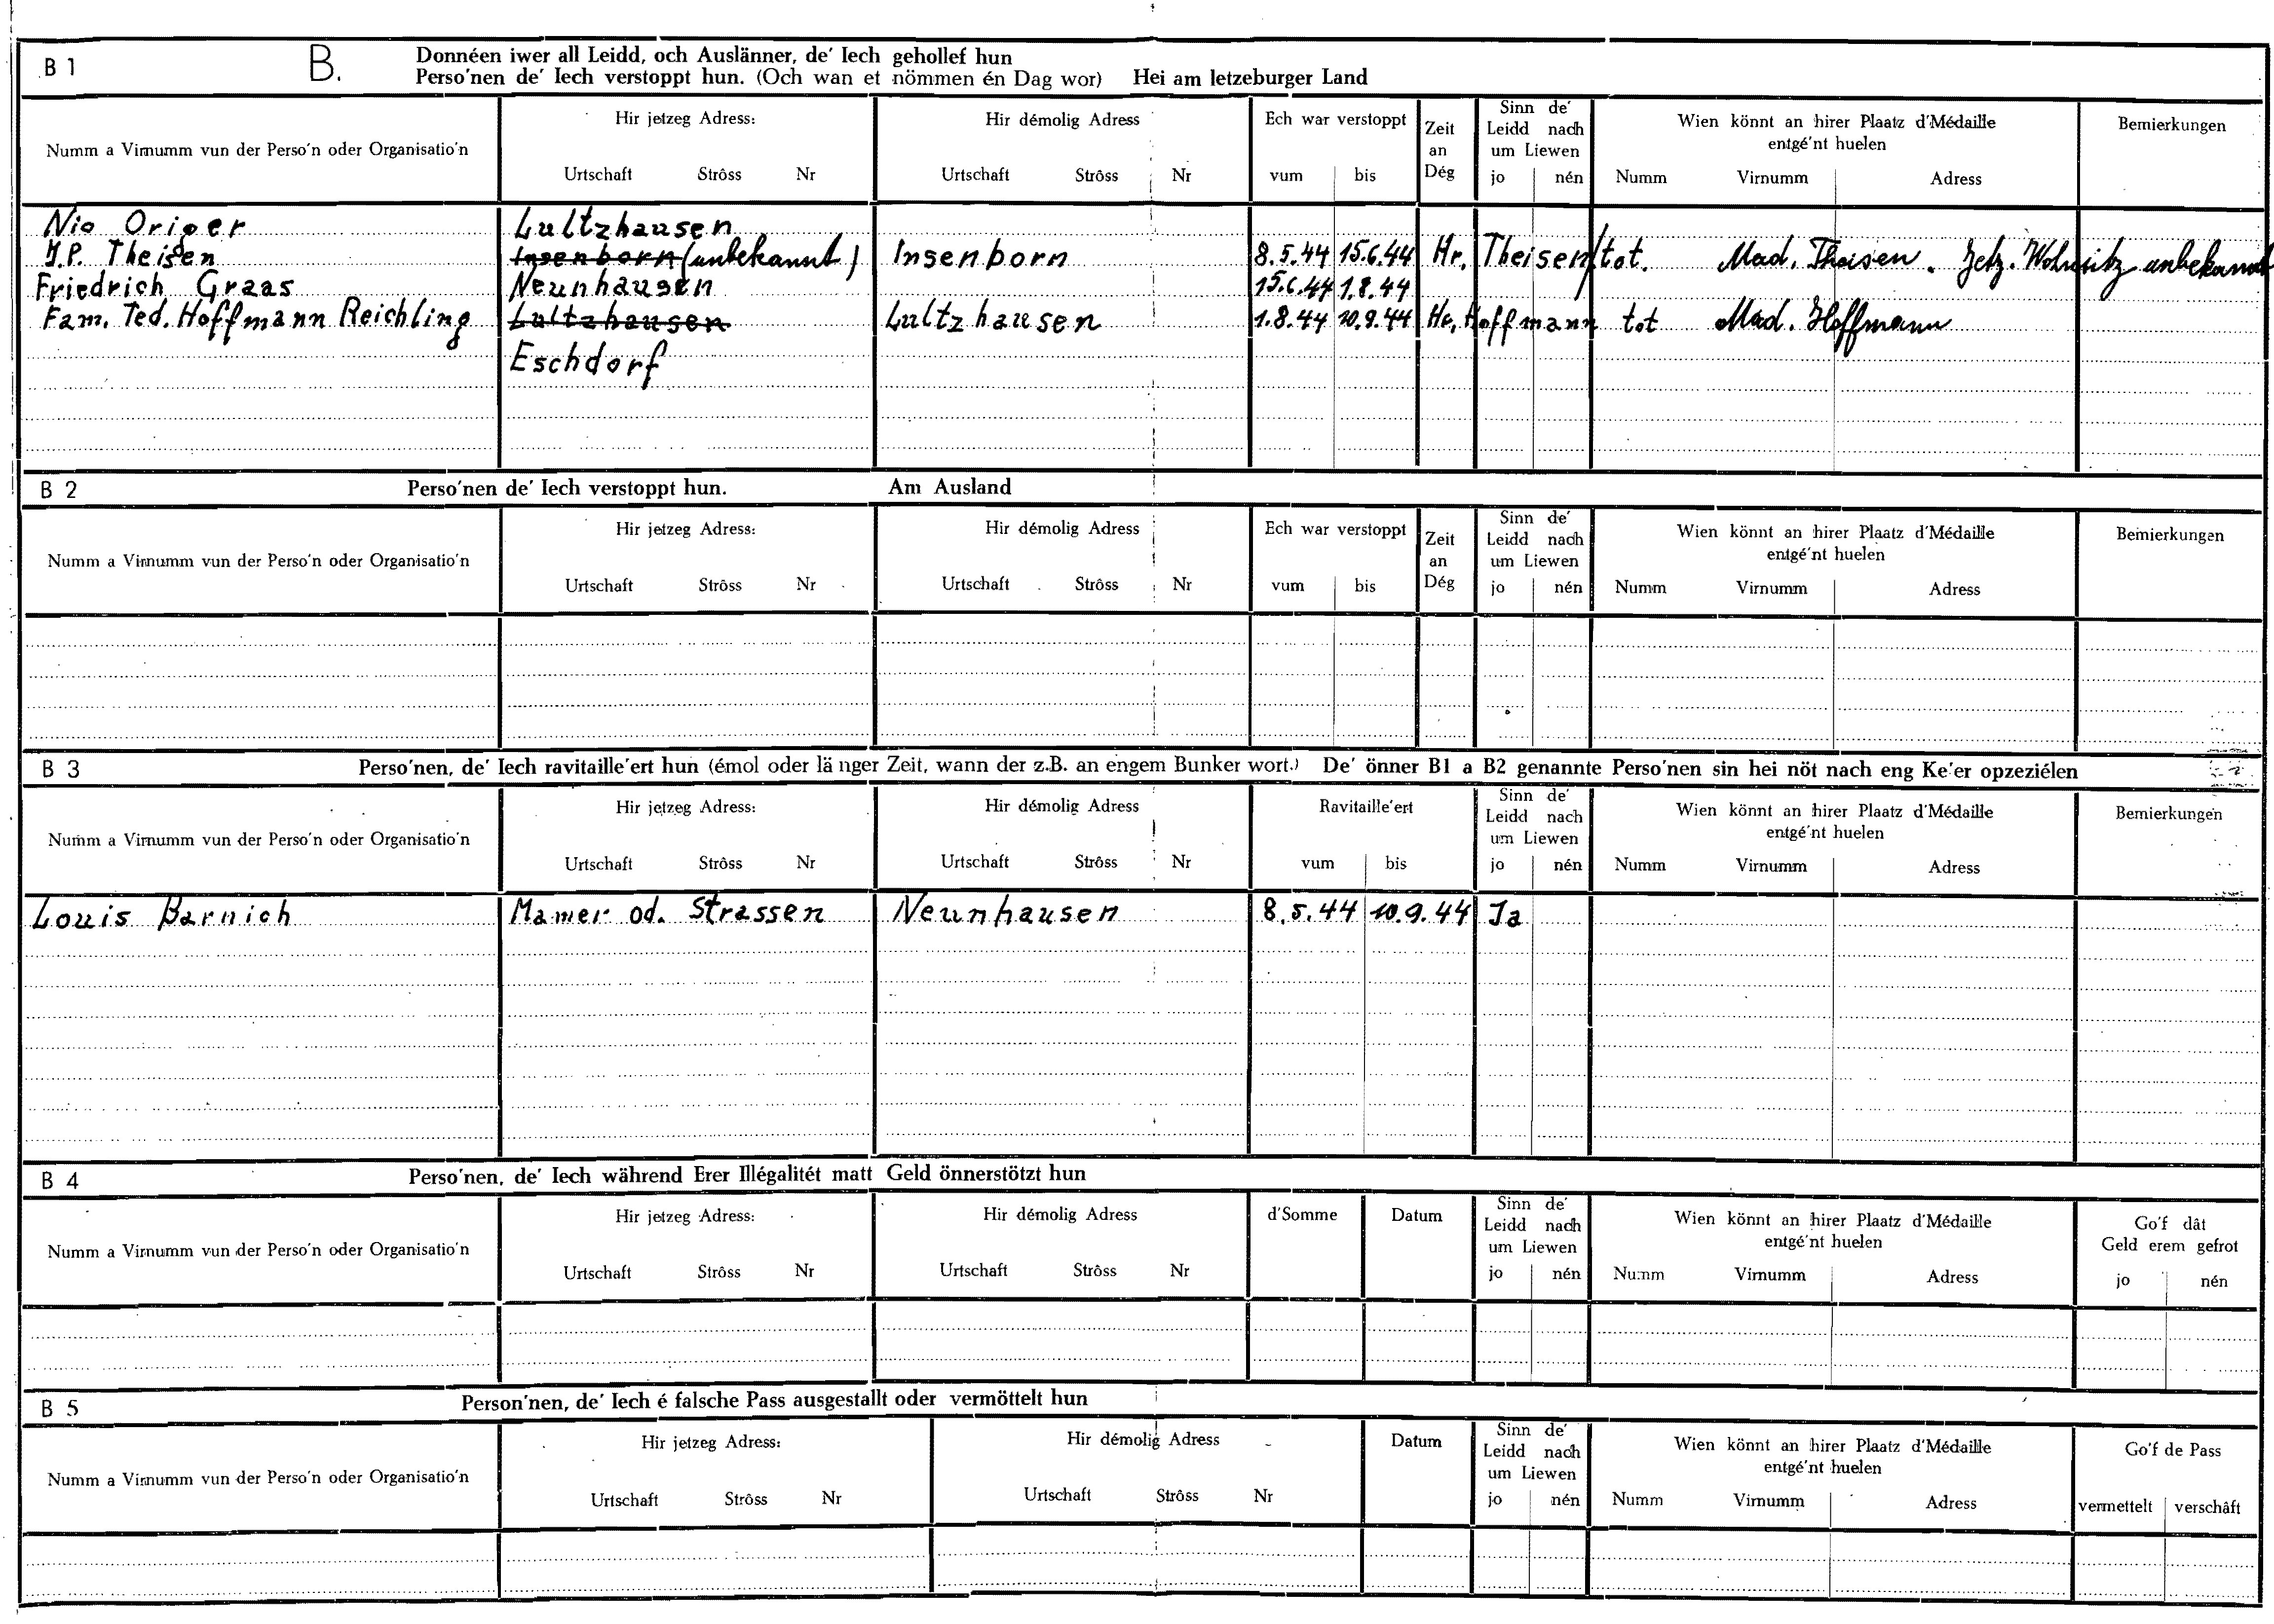 B 1 B. Donnéen iwer all Leidd, och Auslänner, de' Iech gehollef hun
Perso'nen de' Iech verstoppt hun. (Och wan et nömmen én Dag wor) Hei am letzeburger Land
Numm a Virnumm vun der Perso'n oder Organisatio'n
Hir jetzeg Adress:
Urtschaft Strôss Nr
Hir démolig Adress
Urtschaft Strôss Nr
Ech war verstoppt
vum bis
Zeit
an
Dég
Sinn de'
Leidd nach
um Liewen
jo nén
Wien könnt an hirer Plaatz d'Médaille
entgé'nt huelen
Numm Virnumm Adress
Bemierkungen
Nic Origer Lultzhausen
J.P. Theisen Insenborn (unbekannt) Insenborn 8.5.44 15.6.44 Hr. Theisen tot. Mad. Theisen. Jetz. Wohnsitz unbekannt
Friedrich Graas Neunhausen 15.6.44 1.8.44
Fam. Ted. Hoffmann Reichling Lultzhausen Lultzhausen 1.8.44 10.9.44 Hr. Hoffmann tot Mad. Hoffmann
Eschdorf
B 2 Perso'nen de' Iech verstoppt hun. Am Ausland
Numm a Virnumm vun der Perso'n oder Organisatio'n
Hir jetzeg Adress:
Urtschaft Strôss Nr
Hir démolig Adress
Urtschaft Strôss Nr
Ech war verstoppt
vum bis
Zeit
an
Dég
Sinn de'
Leidd nach
um Liewen
jo nén
Wien könnt an hirer Plaatz d'Médaille
entgé'nt huelen
Numm Virnumm Adress
Bemierkungen
B 3 Perso'nen, de' Iech ravitaille'ert hun (émol oder länger Zeit, wann der z.B. an engem Bunker wort.) De' önner B1 a B2 genannte Perso'nen sin hei nöt nach eng Ke'er opzeziélen
Numm a Virnumm vun der Perso'n oder Organisatio'n
Hir jetzeg Adress:
Urtschaft Strôss Nr
Hir démolig Adress
Urtschaft Strôss Nr
Ravitaille'ert
vum bis
Sinn de'
Leidd nach
um Liewen
jo nén
Wien könnt an hirer Plaatz d'Médaille
entgé'nt huelen
Numm Virnumm Adress
Bemierkungen
Louis Barnich Mamer od. Strassen Neunhausen 8.5.44 10.9.44 Ja
B 4 Perso'nen, de' Iech während Erer Illégalitét matt Geld önnerstötzt hun
Numm a Virnumm vun der Perso'n oder Organisatio'n
Hir jetzeg Adress:
Urtschaft Strôss Nr
Hir démolig Adress
Urtschaft Strôss Nr
d'Somme
Datum
Sinn de'
Leidd nach
um Liewen
jo nén
Wien könnt an hirer Plaatz d'Médaille
entgé'nt huelen
Numm Virnumm Adress
Go'f dât
Geld erem gefrot
jo nén
B 5 Person'nen, de' Iech é falsche Pass ausgestallt oder vermöttelt hun
Numm a Virnumm vun der Perso'n oder Organisatio'n
Hir jetzeg Adress:
Urtschaft Strôss Nr
Hir démolig Adress
Urtschaft Strôss Nr
Datum
Sinn de'
Leidd nach
um Liewen
jo nén
Wien könnt an hirer Plaatz d'Médaille
entgé'nt huelen
Numm Virnumm Adress
Go'f de Pass
vermettelt verschâft